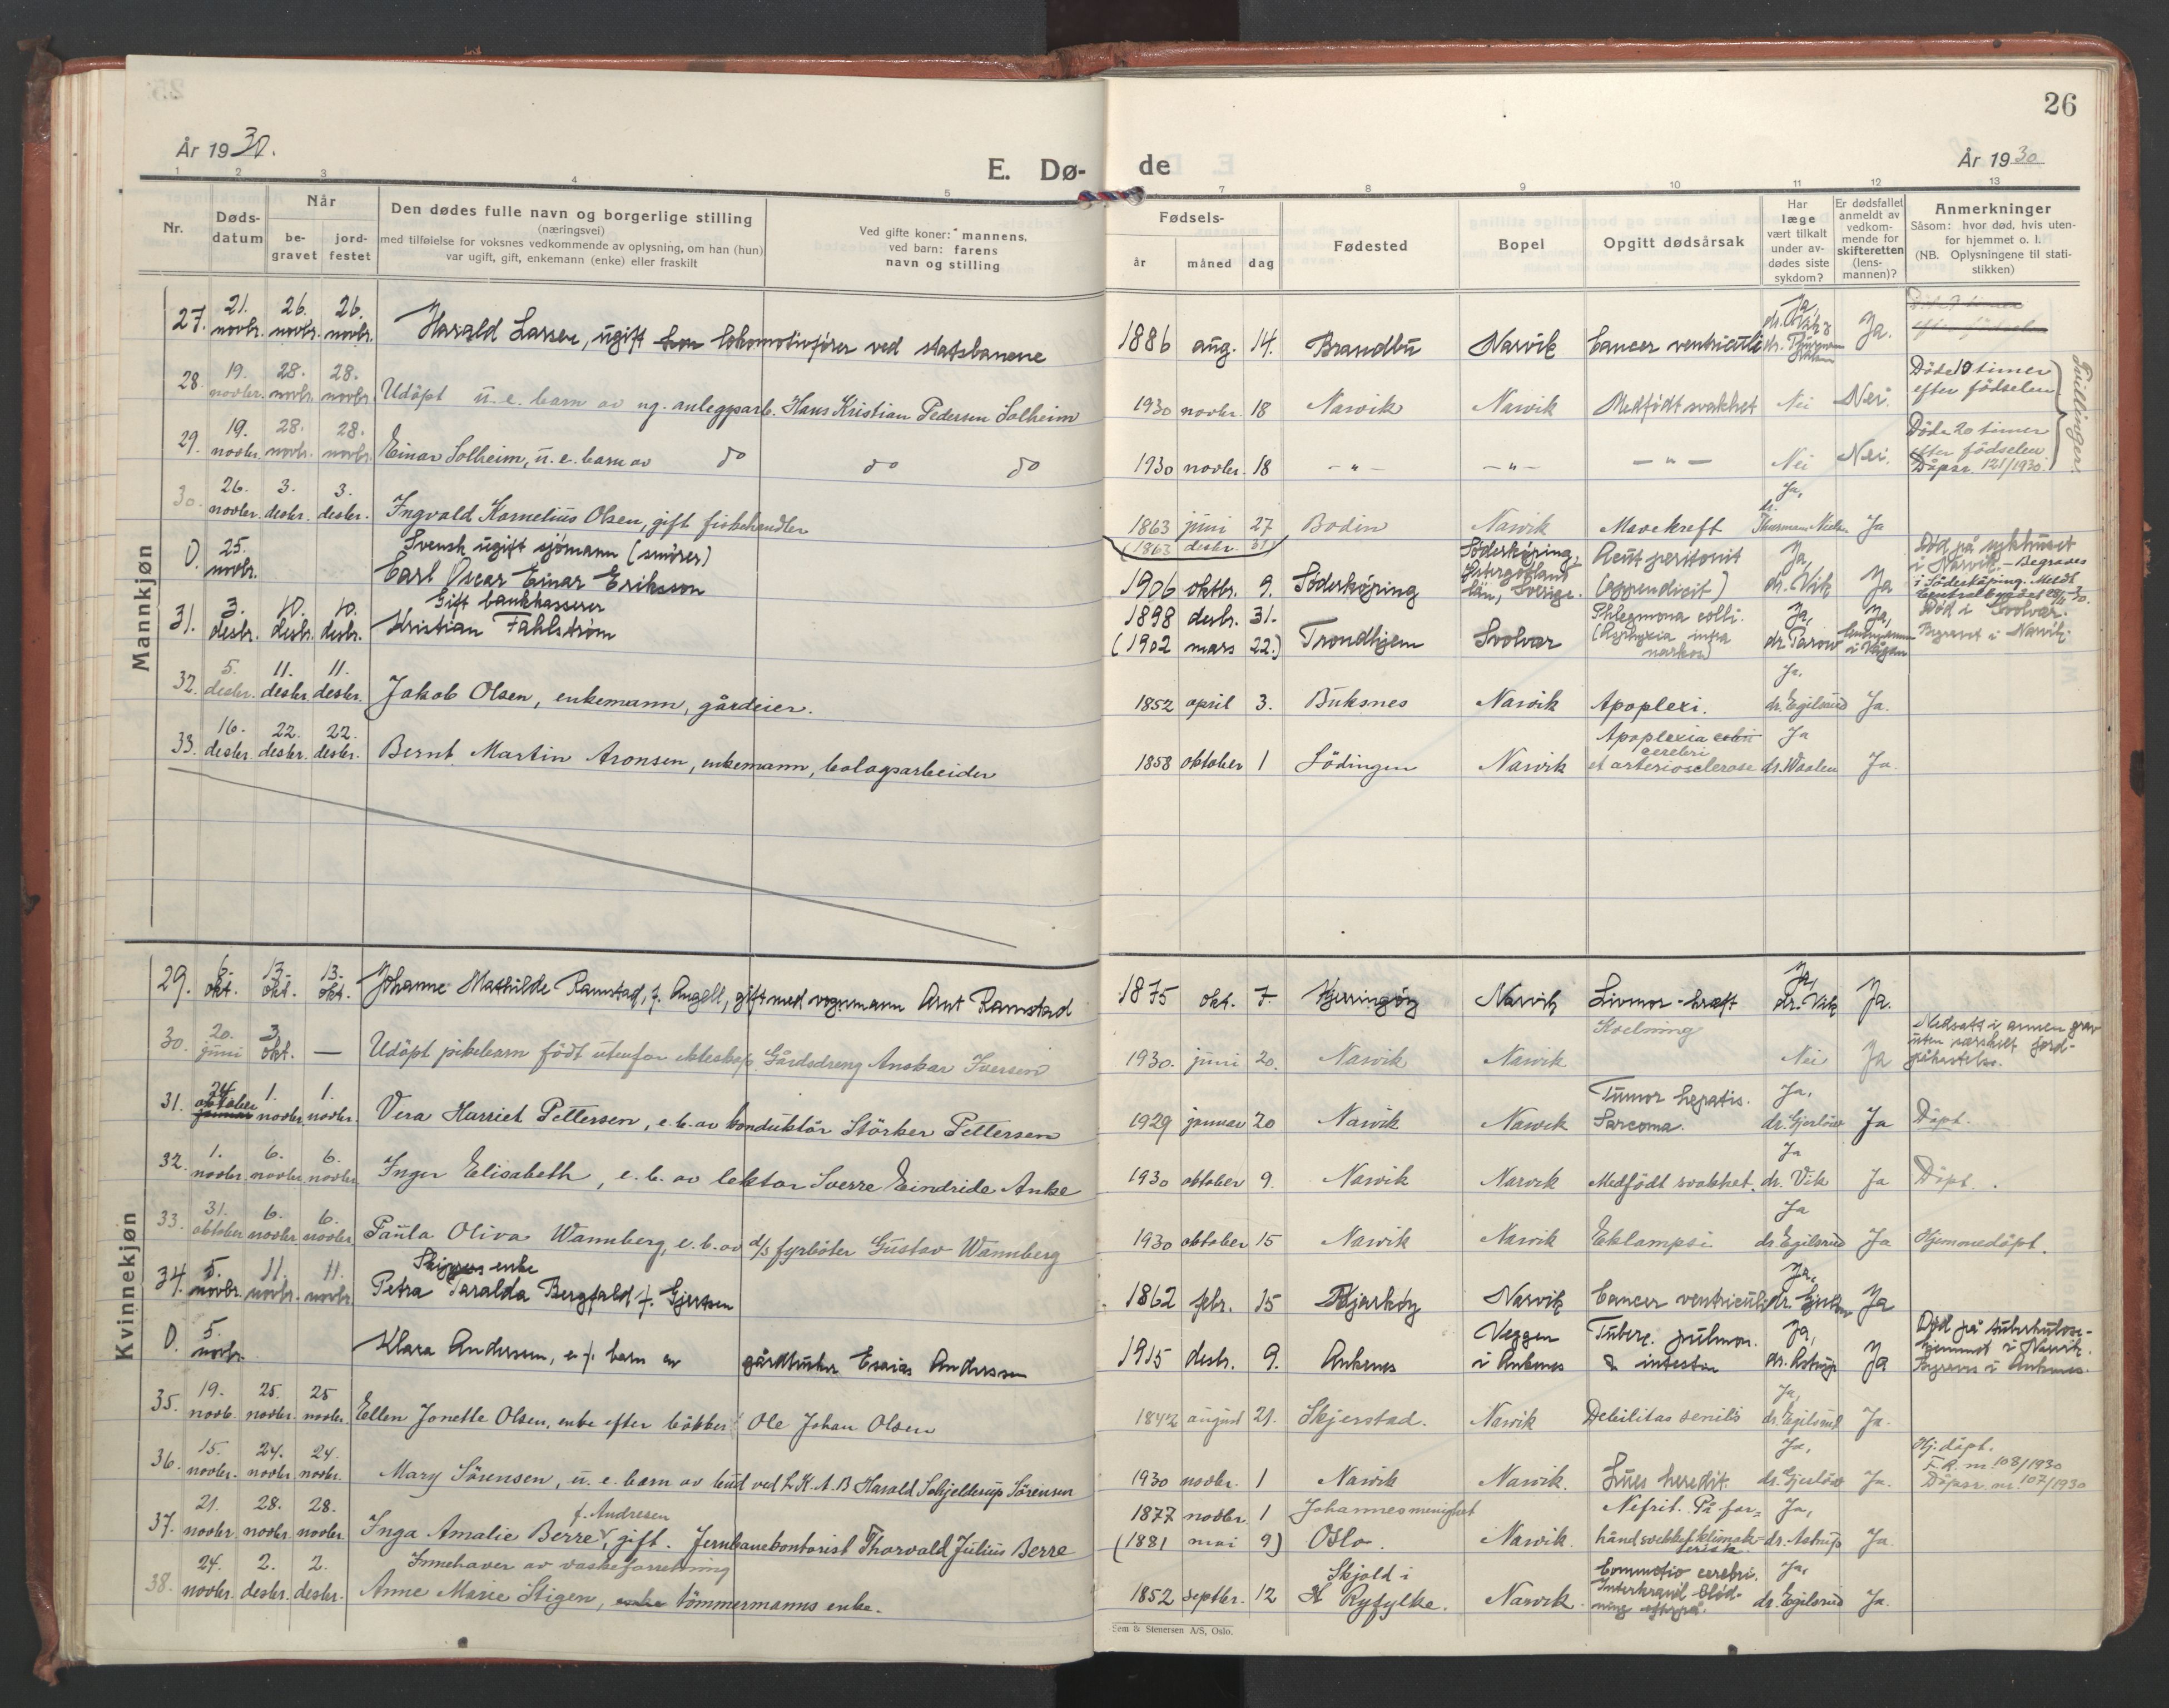 26
År 1930.
E. Dø-
de
År 1930
1 2 3 4 5 7 8 9 10 11 12 13
Nr.
Døds-
datum
Når
be-
gravet
jord-
festet
Den dødes fulle navn og borgerlige stilling
(næringsvei)
med tilføielse for voksnes vedkommende av oplysning, om han (hun)
var ugift, gift, enkemann (enke) eller fraskilt
Ved gifte koner: mannens,
ved barn: farens
navn og stilling
Fødsels-
år måned dag
Fødested
Bopel
Opgitt dødsårsak
Har
læge
vært tilkalt
under av-
dødes siste
sykdom?
Er dødsfallet
anmeldt av
vedkom-
mende for
skifteretten
(lens-
mannen)?
Anmerkninger
Såsom: hvor død, hvis uten-
for hjemmet o. l.
(NB. Oplysningene til stati-
stikken)
Mannkjøn
27. 21. novbr. 26. novbr. 26. novbr. Harald Larsen, ugift lokomotivfører ved statsbanene 1886 aug. 14. Brandbu Narvik Cancer ventriculi Ja, Ja.
28. 19. novbr. 28. novbr. 28. novbr. Udöpt u. e. barn av ug. anleggsarb. Hans Kristian Pedersen Solheim 1930 novbr. 18 Narvik Narvik Medfödt svakhet Nei Nei. Döde 10 timer efter födselen
Tvillinger.
29. 19. novbr. 28. novbr. 28. novbr. Einar Solheim, u. e. barn av do do do 1930 novbr. 18 -"- -"- -"- Nei Nei. Döde 20 timer efter födselen Döpsr. 121/1930.
30. 26. novbr. 3. desbr. 3. desbr. Ingvald Kornelius Olsen, gift fiskehandler 1863 juni 27 (1863 desbr. 31) Bodin Narvik Mavekreft Ja, dr. Thurmann Nielsen Ja
0. 25. novbr. Svensk ugift sjömann (smörer) Carl Oscar Einar Eriksson 1906 oktbr. 9. Söderköping Söderköping, Östergötland län, Sverige. Acut peritonit (appendicit) Ja, dr. Vik Ja Död på sykehuset i Narvik. - Begraves i Söderköping.
31. 3. desbr. 10. desbr. 10. desbr. Gift bankkasserer Kristian Fahlstrøm 1898 desbr. 31. (1902 mars 22.) Trondhjem Svolvær Phlegmona colli. Ja, dr. Parow Ja, i Vågan Död i Svolvær. Begravet i Narvik.
32. 5. desbr. 11. desbr. 11. desbr. Jakob Olsen, enkemann, gårdeier. 1852 april 3. Buksnes Narvik Apoplexi. Ja. dr. Egilsrud Ja.
33. 16. desbr. 22. desbr. 22. desbr. Bernt Martin Aronsen, enkemann, bolagsarbeider 1858 oktober 1 Lödingen Narvik Apoplexia cerebri et arteriosclerose Ja dr. Waalen Ja.
Kvinnekjøn
29. 6. okt. 13. okt. 13. okt. Johanne Mathilde Ramstad, f. Angell, gift med vognmann Arnt Ramstad 1875 okt. 7. Kjerringøy Narvik Livmor-kræft Ja, dr. Vik Ja.
30. 20. juni 3 okt. — Udöpt pikebarn födt utenfor ekteskap Gårdsdreng Anskar Iversen 1930. juni 20. Narvik Narvik Kvelning Nei Ja Nedsatt i annen grav uten særskilt jord-påkastelse.
31. 24 oktober 1. novbr. 1. novbr. Vera Harriet Pettersen, e. b. av konduktör Störker Pettersen 1929 januar 20 Narvik Narvik Tumor hepatis. Sarcoma. Ja, dr. Gjerlöw Ja Döpt.
32. 1. novbr. 6. novbr. 6. novbr. Inger Elisabeth, e. b. av lektor Sverre Eindride Anke 1930 oktober 9. Narvik Narvik Medfödt svakhet. Ja dr. Vik Ja Döpt.
33. 31. oktober 6. novbr. 6. novbr. Paula Oliva Wannberg, e. b. av d/s fyrböter Gustav Wannberg 1930 oktober 15 Narvik Narvik Eklampsi Ja dr. Egilsrud Ja Hjemmedöpt.
34. 5. novbr. 11. novbr. 11. novbr. Skippers enke Petra Taralda Bergfald f. Gjertsen 1862 febr. 15 Bjarkøy Narvik Cancer ventriculi Ja, dr. Gjerløw Ja
0. 5. novbr. Klara Andersen, e. f. barn av gårdbruker Esaias Andersen 1915 desbr. 9. Ankenes Veggen i Ankenes Tuberc. pulmon. & intestin Ja, dr. Astrup Ja Död på tuberkulose-hjemmet i Narvik. Begraves i Ankenes.
35. 19. novb. 25. novbr. 25 novbr. Ellen Jonette Olsen, enke efter bökker Ole Johan Olsen 1842 august 21. Skjerstad. Narvik Debilitas senilis Ja, dr. Egilsrud Ja.
36. 15. novbr. 24. novbr. 24. novbr. Mary Sörensen, u. e. barn av bud ved L.K.A.B Harald Schjelderup Sörensen 1930 novbr. 1 Narvik Narvik. Lues heredit. Ja, dr. Gjerlöw Ja. Hj. döpt. F. R. nr 108/1930 Döpsr. nr. 107/1930
37. 21. novbr. 28. novbr. 28. novbr. Inga Amalie Berre, f. Andresen gift. Jernbanekontorist Thorvald Julius Berre 1877 novbr. 1 (1881 mai 9) Johannesmenighet Oslo. Narvik. Nefrit. På for-hånd svekket Ja, dr. Astrup Ja.
38. 24. novbr. 2. desbr. 2. desbr. Innehaver av vaskeforretning Anne Marie Stigen, enke tömmermanns enke. 1852 septbr. 12 Skjold i Ryfylke. Narvik. Commotio cerebri. Ja, dr. Egilsrud Ja.
Sem & Stenersen A/S, Oslo.